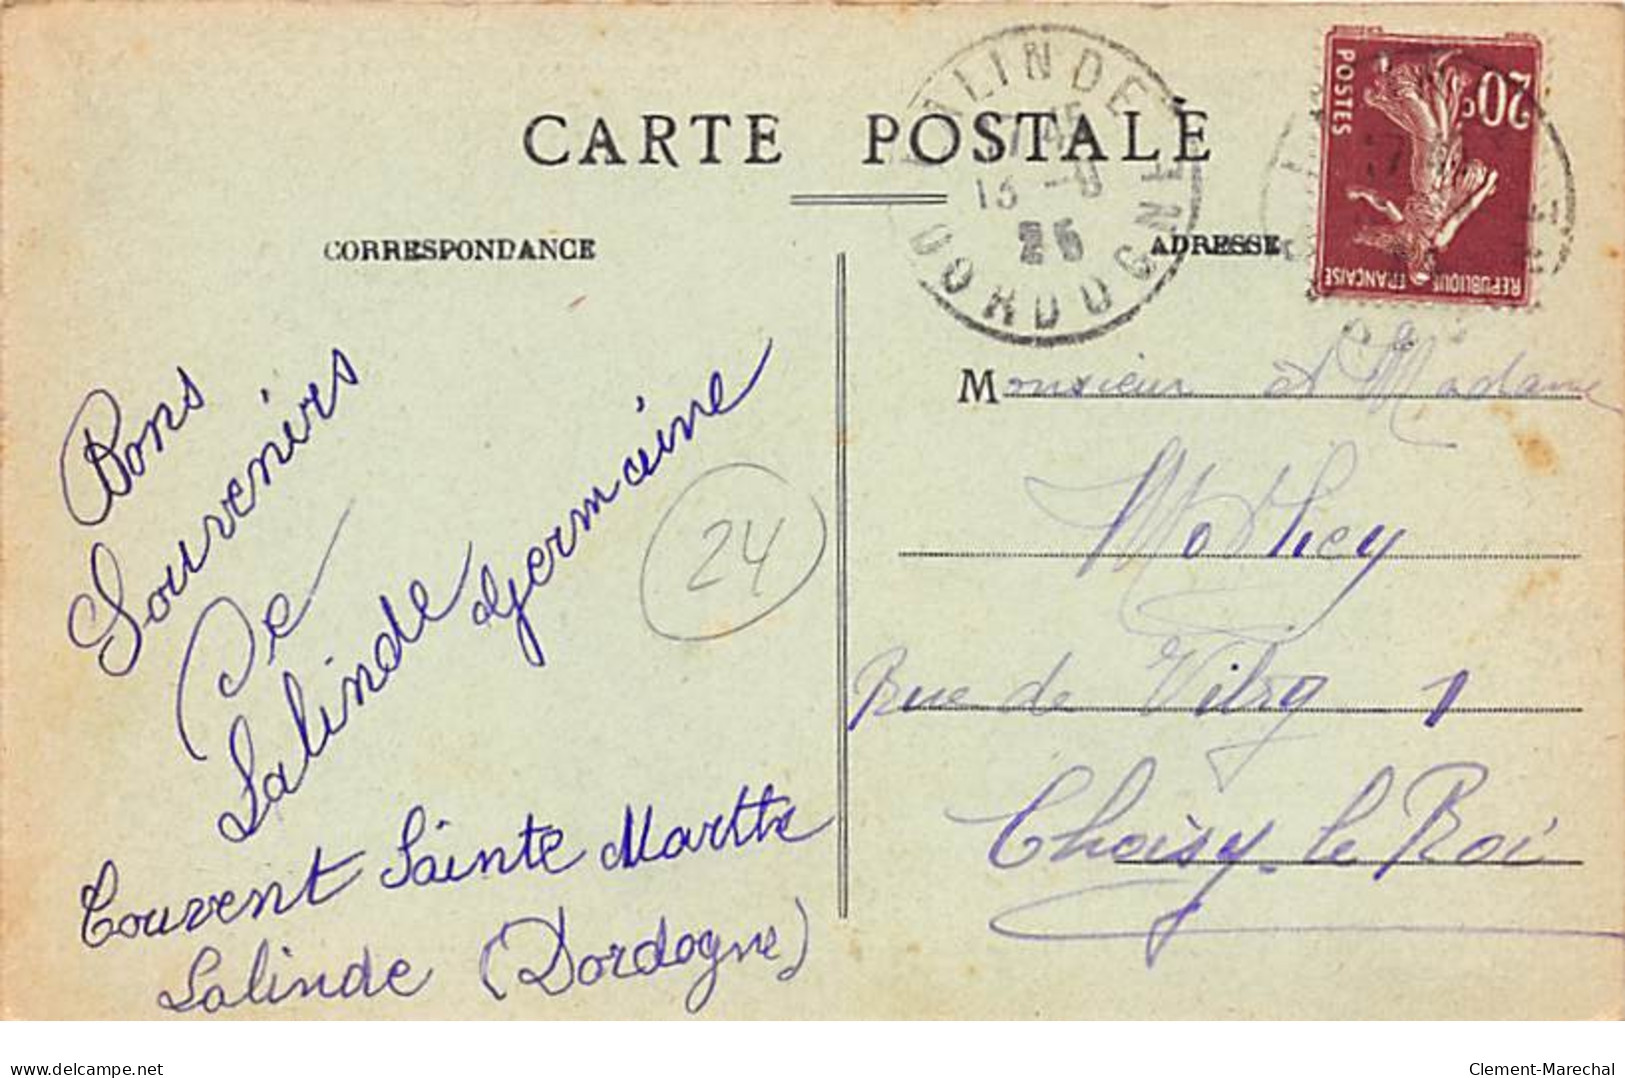 CARTE POSTALE
CORRESPONDANCE
ADRESSE
LALINDE
13 -8
25
DORDOGNE
20c
POSTES
REPUBLIQUE FRANÇAISE
Bons
Souvenirs
De
Lalinde Germaine
24
Couvent Sainte Marthe
Lalinde (Dordogne)
Monsieur et Madame
Rue de Vitry 1
Choisy-le Roi
delcampe.net
Clement-Marechal